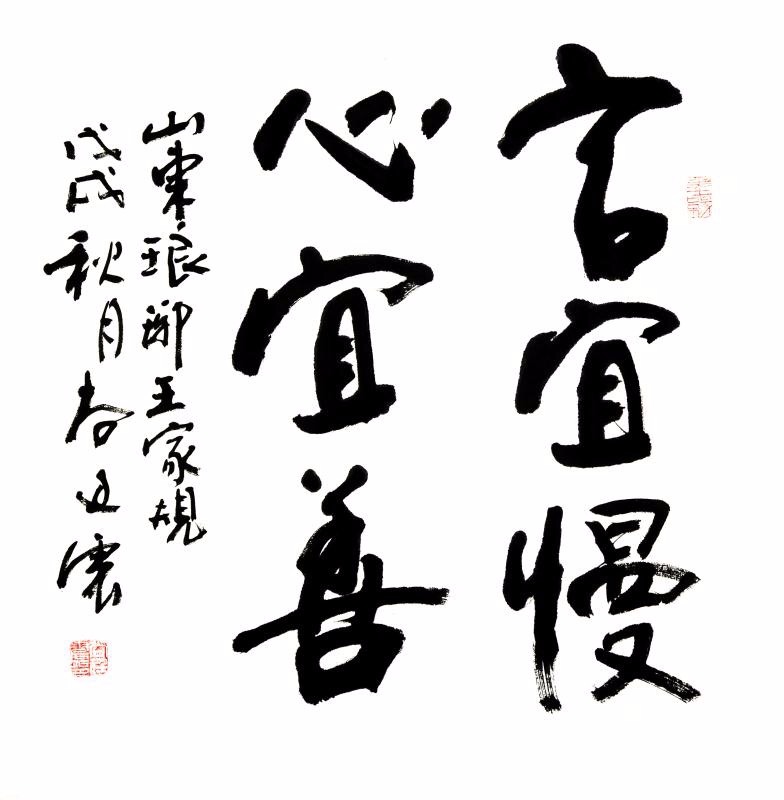 言宜慢
心宜善
山東琅琊王家規
戊戌秋月春